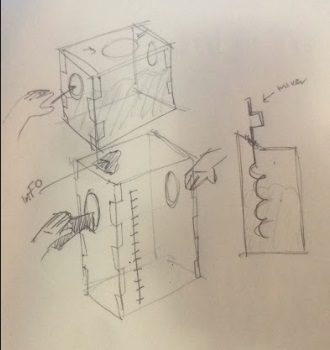 mixer
INFO